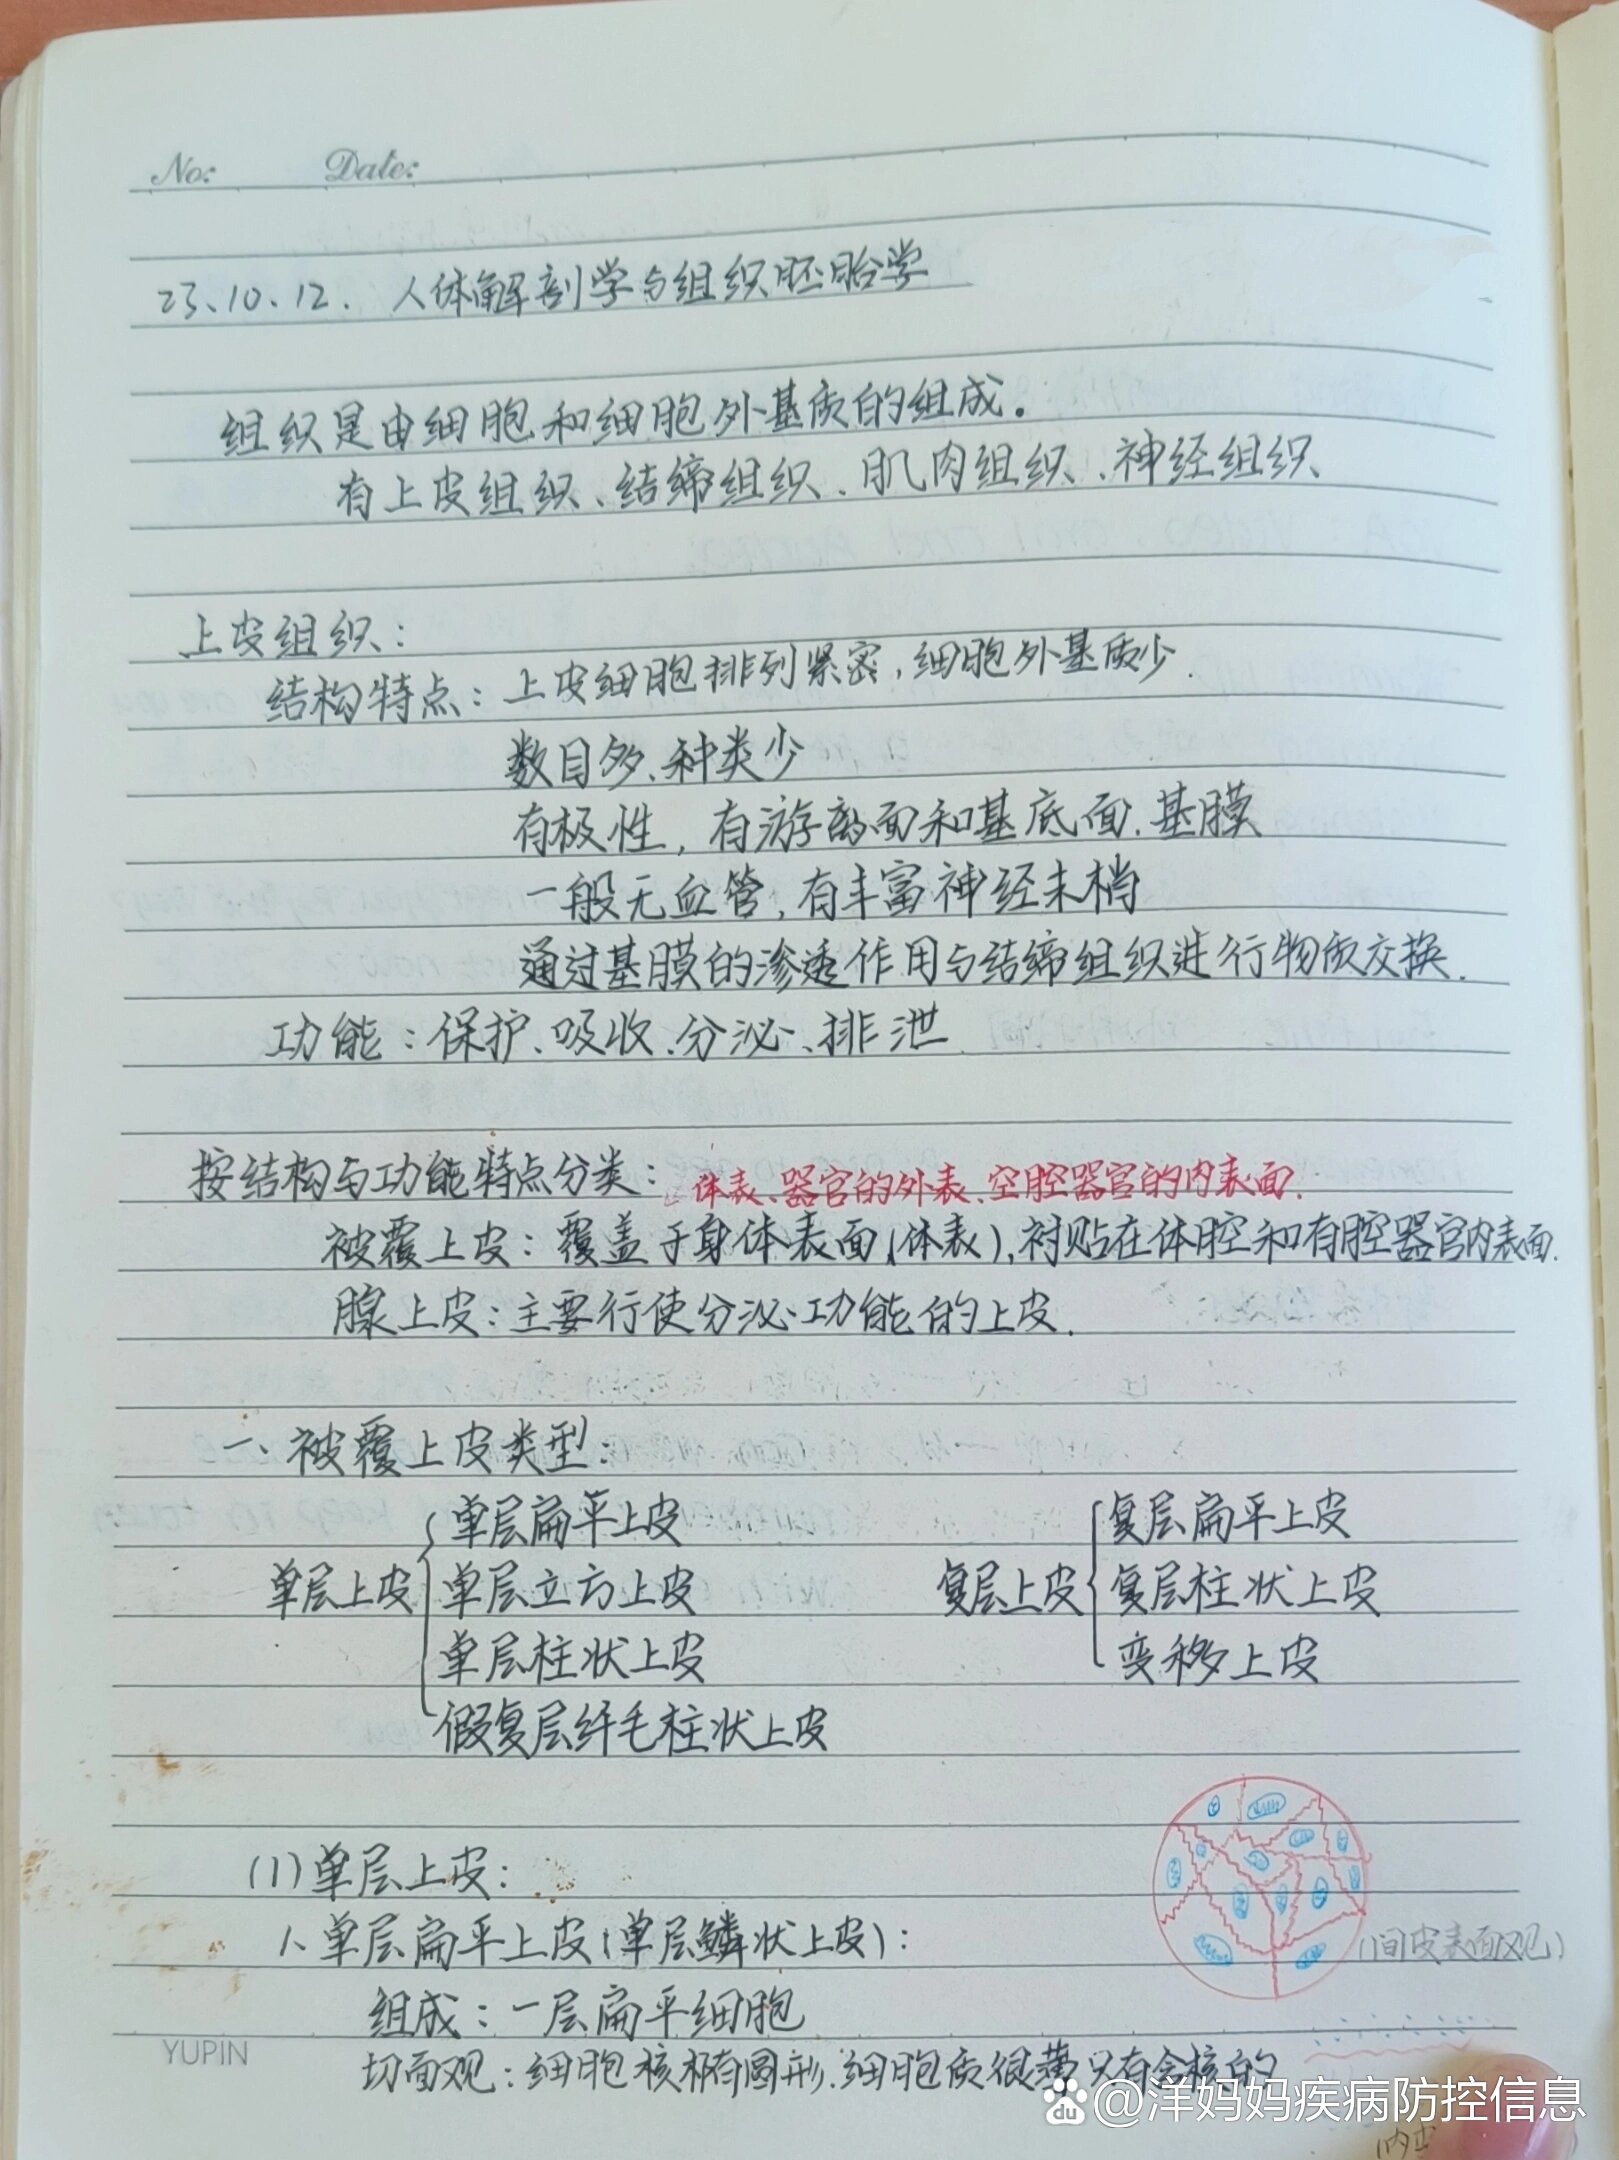 No: Date:
23.10.12. 人体解剖学与组织胚胎学
组织是由细胞和细胞外基质的组成。
有上皮组织、结缔组织、肌肉组织、神经组织
上皮组织:
结构特点:上皮细胞排列紧密,细胞外基质少.
数目多、种类少
有极性,有游离面和基底面.基膜
一般无血管,有丰富神经末梢
通过基膜的渗透作用与结缔组织进行物质交换.
功能:保护、吸收、分泌、排泄
按结构与功能特点分类: 体表、器官的外表、空腔器官的内表面.
被覆上皮:覆盖于身体表面(体表),衬贴在体腔和有腔器官内表面.
腺上皮:主要行使分泌功能的上皮.
一、被覆上皮类型:
单层扁平上皮 复层扁平上皮
单层上皮 单层立方上皮 复层上皮 复层柱状上皮
单层柱状上皮 变移上皮
假复层纤毛柱状上皮
(1)单层上皮:
1、单层扁平上皮(单层鳞状上皮):
(间皮表面观)
组成:一层扁平细胞
YUPIN
切面观:细胞核椭圆形.细胞质很薄只有含核的
du @洋妈妈疾病防控信息